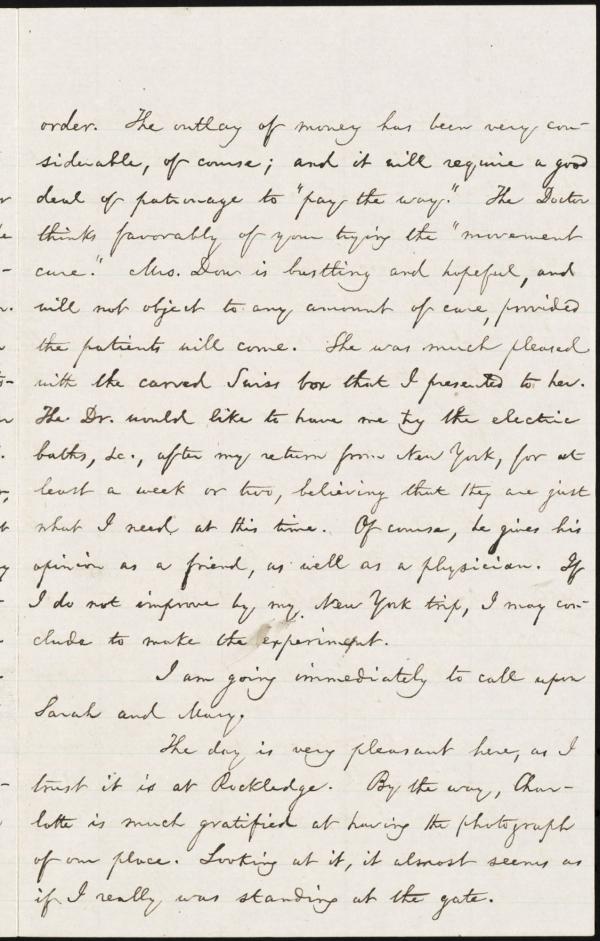 order. The outlay of money has been very con-
siderable, of course; and it will require a good
deal of patronage to "pay the way." The Doctor
thinks favorably of your trying the "movement
cure." Mrs. Dow is bustling and hopeful, and
will not object to any amount of care, provided
the patients will come. She was much pleased
with the carved Swiss box that I presented to her.
The Dr. would like to have me try the electric
baths, &c., after my return from New York, for at
least a week or two, believing that they are just
what I need at this time. Of course, he gives his
opinion as a friend, as well as a physician. If
I do not improve by my New York trip, I may con-
clude to make the experiment.
I am going immediately to call upon
Sarah and Mary.
The day is very pleasant here, as I
trust it is at Rockledge. By the way, Char-
lotte is much gratified at having the photograph
of our place. Looking at it, it almost seems as
if I really was standing at the gate.